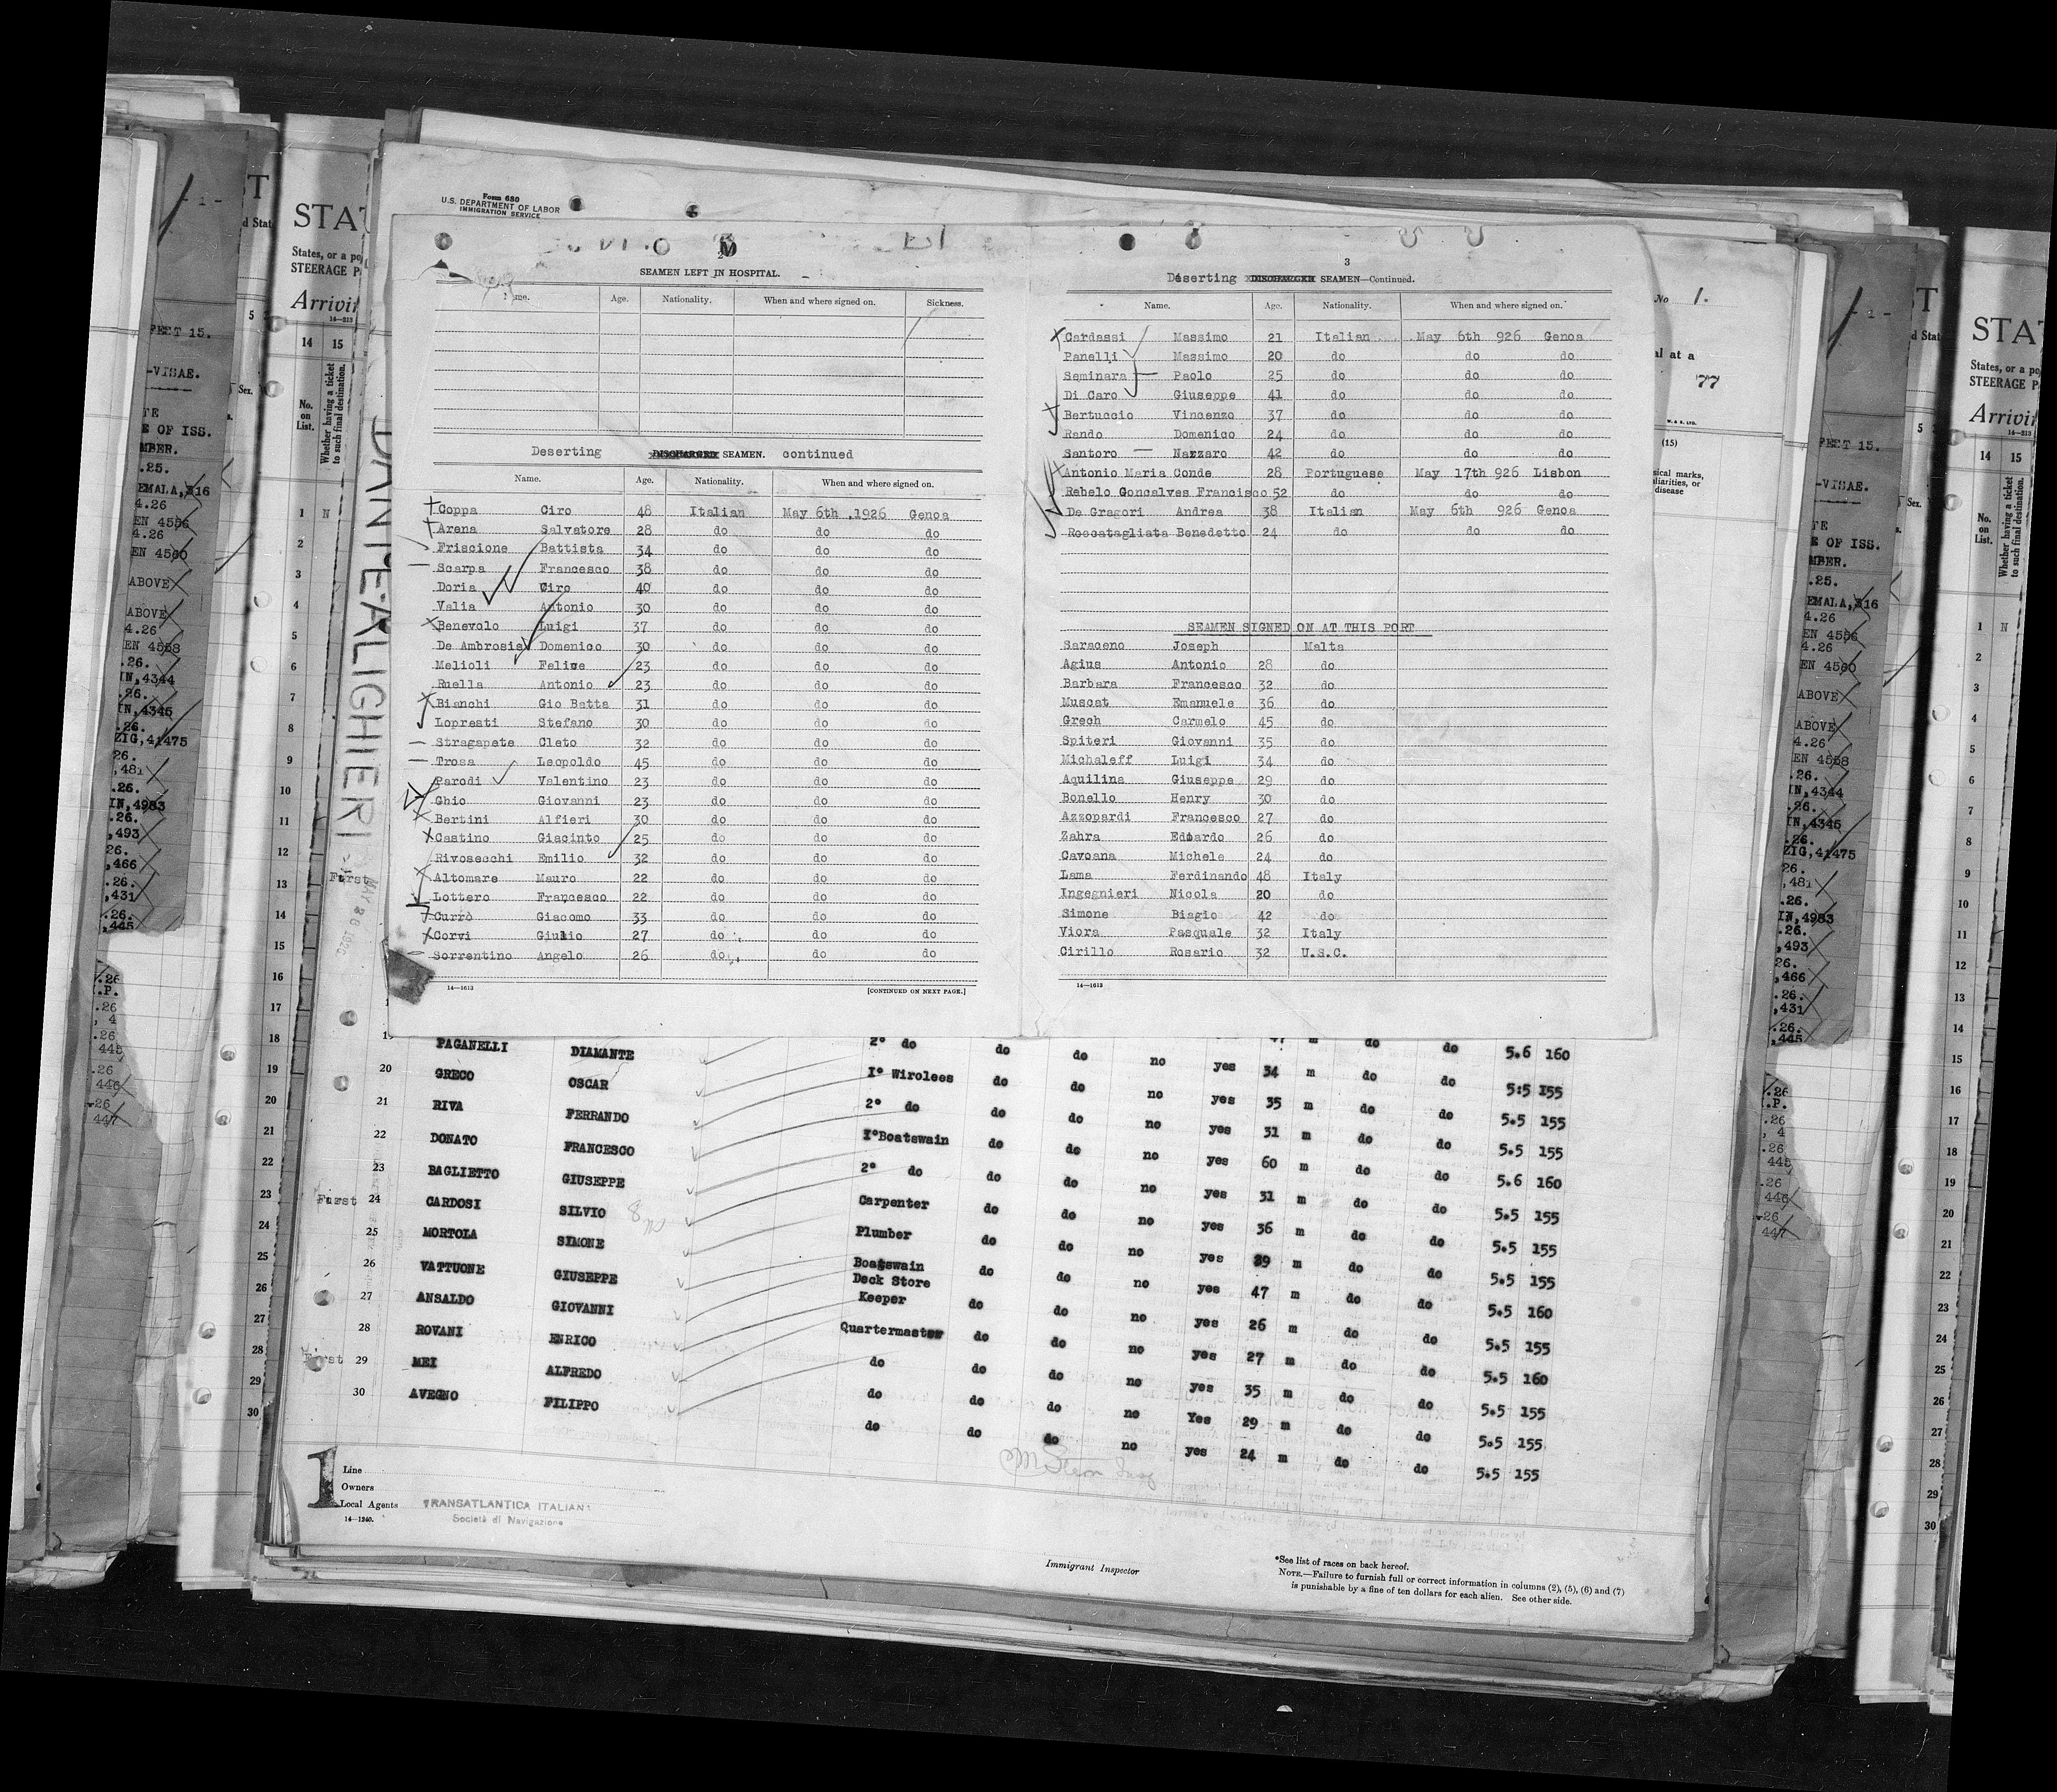 Form 680
U.S. DEPARTMENT OF LABOR
IMMIGRATION SERVICE
2
SEAMEN LEFT IN HOSPITAL.
Name. Age. Nationality. When and where signed on. Sickness.
Deserting DISCHARGED SEAMEN. continued
Name. Age. Nationality. When and where signed on.
Coppa Ciro 48 Italian May 6th ,1926 Genoa
Arena Salvatore 28 do do do
Friscione Battista 34 do do do
Scarpa Francesco 38 do do do
Doria Ciro 40 do do do
Valia Antonio 30 do do do
Benevolo Luigi 37 do do do
De Ambrosis Domenico 30 do do do
Melioli Felice 23 do do do
Ruella Antonio 23 do do do
Bianchi Gio Batta 31 do do do
Lopresti Stefano 30 do do do
Stragapete Cleto 32 do do do
Trosa Leopoldo 45 do do do
Parodi Valentino 23 do do do
Ghio Giovanni 23 do do do
Bertini Alfieri 30 do do do
Castino Giacinto 25 do do do
Rivosecchi Emilio 32 do do do
Altomare Mauro 22 do do do
Lottero Francesco 22 do do do
Currò Giacomo 33 do do do
Corvi Giulio 27 do do do
Sorrentino Angelo 26 do do do
14—1613 [CONTINUED ON NEXT PAGE.]
3
Deserting DISCHARGED SEAMEN—Continued.
Name. Age. Nationality. When and where signed on.
Cardassi Massimo 21 Italian May 6th 926 Genoa
Panelli Massimo 20 do do do
Seminara Paolo 25 do do do
Di Caro Giuseppe 41 do do do
Bertuccio Vincenzo 37 do do do
Rando Domenico 24 do do do
Santoro Nazzaro 42 do do do
Antonio Maria Conde 28 Portuguese May 17th 926 Lisbon
Rebelo Goncalves Francisco 52 do do do
De Gragori Andrea 38 Italian May 6th 926 Genoa
Roccatagliata Benedetto 24 do do do
SEAMEN SIGNED ON AT THIS PORT
Saraceno Joseph Malta
Agius Antonio 28 do
Barbara Francesco 32 do
Muscat Emanuele 36 do
Grech Carmelo 45 do
Spiteri Giovanni 35 do
Michaleff Luigi 34 do
Aquilina Giuseppe 29 do
Bonello Henry 30 do
Azzopardi Francesco 27 do
Zahra Edoardo 26 do
Cavoana Michele 24 do
Lama Ferdinando 48 Italy
Ingegnieri Nicola 20 do
Simone Biagio 42 do
Viora Pasquale 32 Italy
Cirillo Rosario 32 U.S.C.
14—1613
No 1.
al at a
77
(15)
sical marks,
uliarities, or
disease
DANTE ALIGHIERI
PAGANELLI DIAMANTE 2º do do do no yes 34 m do do 5.6 160
20 GRECO OSCAR Iº Wirolees do do no yes 35 m do do 5:5 155
21 RIVA FERRANDO 2º do do do no yes 31 m do do 5.5 155
22 DONATO FRANCESCO IºBoatswain do do no yes 60 m do do 5.5 155
23 BAGLIETTO GIUSEPPE 2º do do do no yes 31 m do do 5.6 160
First 24 CARDOSI SILVIO Carpenter do do no yes 36 m do do 5.5 155
25 MORTOLA SIMONE Plumber do do no yes 39 m do do 5.5 155
26 VATTUONE GIUSEPPE Boatswain Deck Store Keeper do do no yes 47 m do do 5.5 155
27 ANSALDO GIOVANNI Quartermaster do do no yes 26 m do do 5.5 160
28 ROVANI ENRICO do do do no yes 27 m do do 5.5 155
First 29 MEI ALFREDO do do do no Yes 29 m do do 5.5 155
30 AVEGNO FILIPPO do do do no yes 24 m do do 5.5 155
1 Line
Owners
Local Agents
14—1240.
TRANSATLANTICA ITALIANA
Società di Navigazione
Immigrant Inspector
*See list of races on back hereof.
NOTE.—Failure to furnish full or correct information in columns (2), (5), (6) and (7)
is punishable by a fine of ten dollars for each alien. See other side.
STAT
States, or a po
STEERAGE P
Arrivin
14—313
14 15
No. on List.
Whether having a ticket to such final destination.
PEET 15.
-VISAE.
E OF ISS.
MBER.
.25.
EMALA,316
4.26
EN 4556
4.26
EN 4560
ABOVE
ABOVE
4.26
EN 4558
.26.
IN,4344
.26.
IN,4345
.26.
ZIG,41475
26.
,481
.26.
IN,4983
.26.
,493
26.
,466
.26.
,431
.26.
,445
STAT
States, or a po
STEERAGE P
Arrivin
14—313
14 15